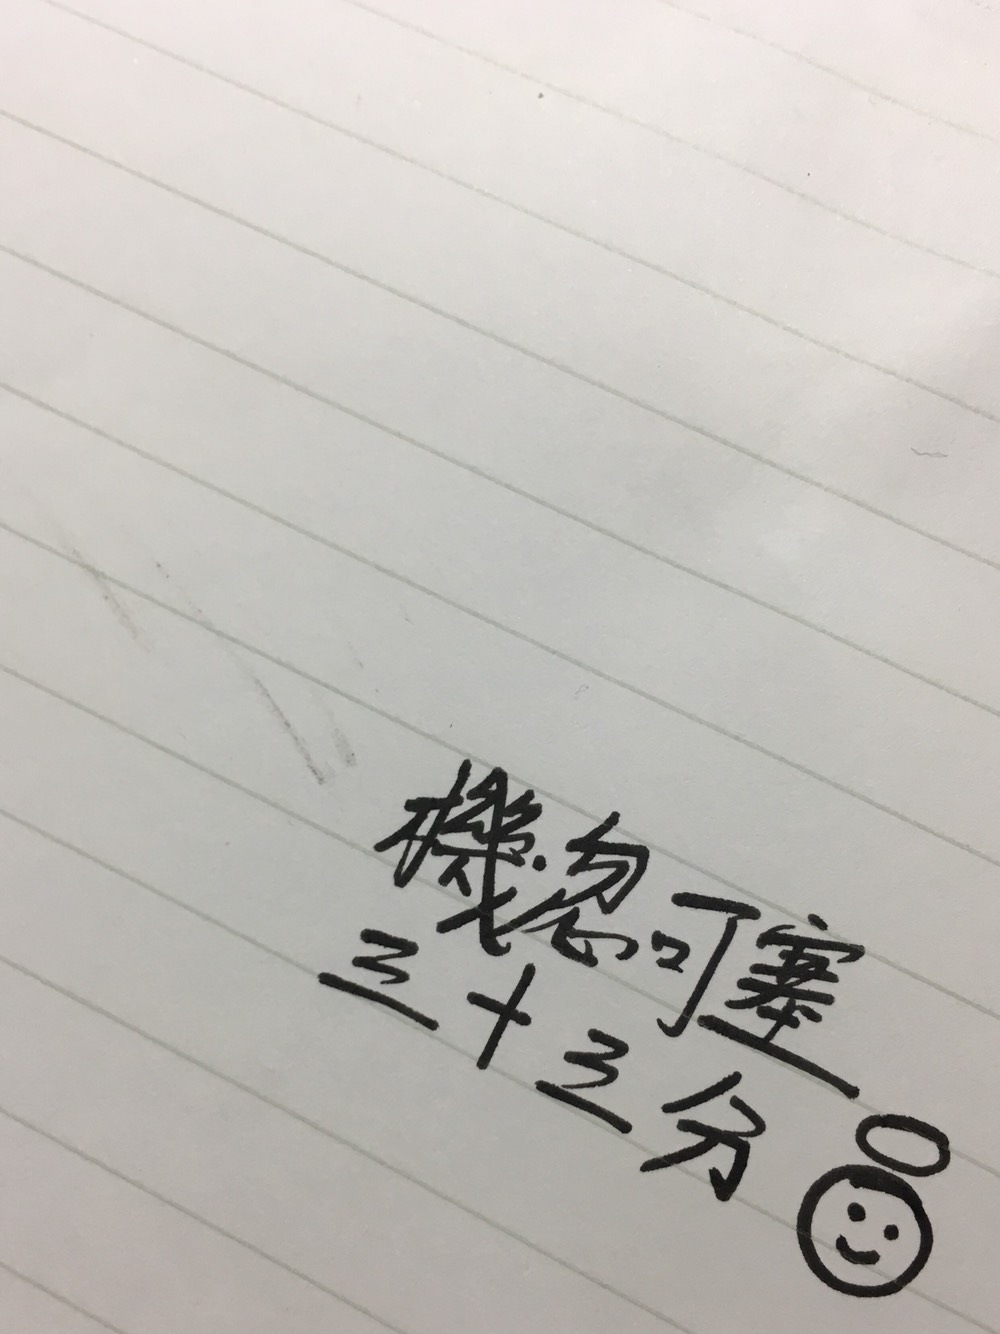 機忽可塞
三十三分